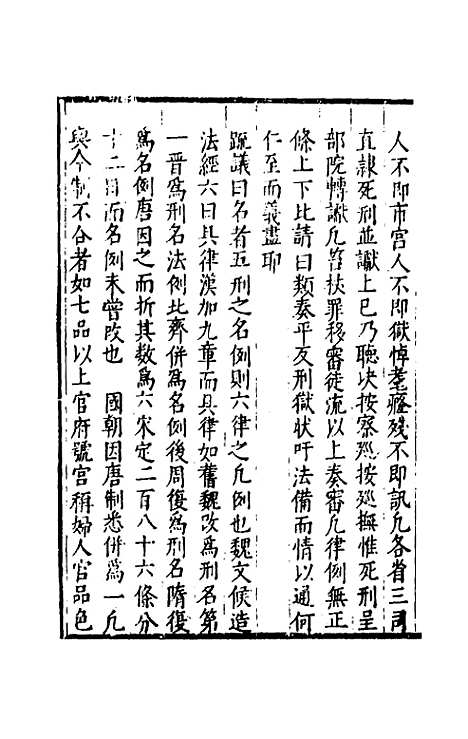 人不即市宫人不即獄悼耄癃殘不即訊凡各省三司
直隷死刑並讞上已乃聴决按察廵按廵撫惟死刑呈
部院轉讞凡笞杖罪移審徒流以上奏審凡律例無正
條上下比請曰類奏平反刑獄狀吁法備而情以通何
仁至而義盡耶
䟽議曰名者五刑之名例則六律之凡例也魏文候造
法經六曰具律漢加九章而具律如舊魏改為刑名第
一晋爲刑名法例北齊併爲名例後周復爲刑名隋復
爲名例唐因之而折其数爲六宋定二百八十六條分
十二目而名例未嘗改也　國朝因唐制悉併爲一凡
與今制不合者如七品以上官府號官稱婦人官品色